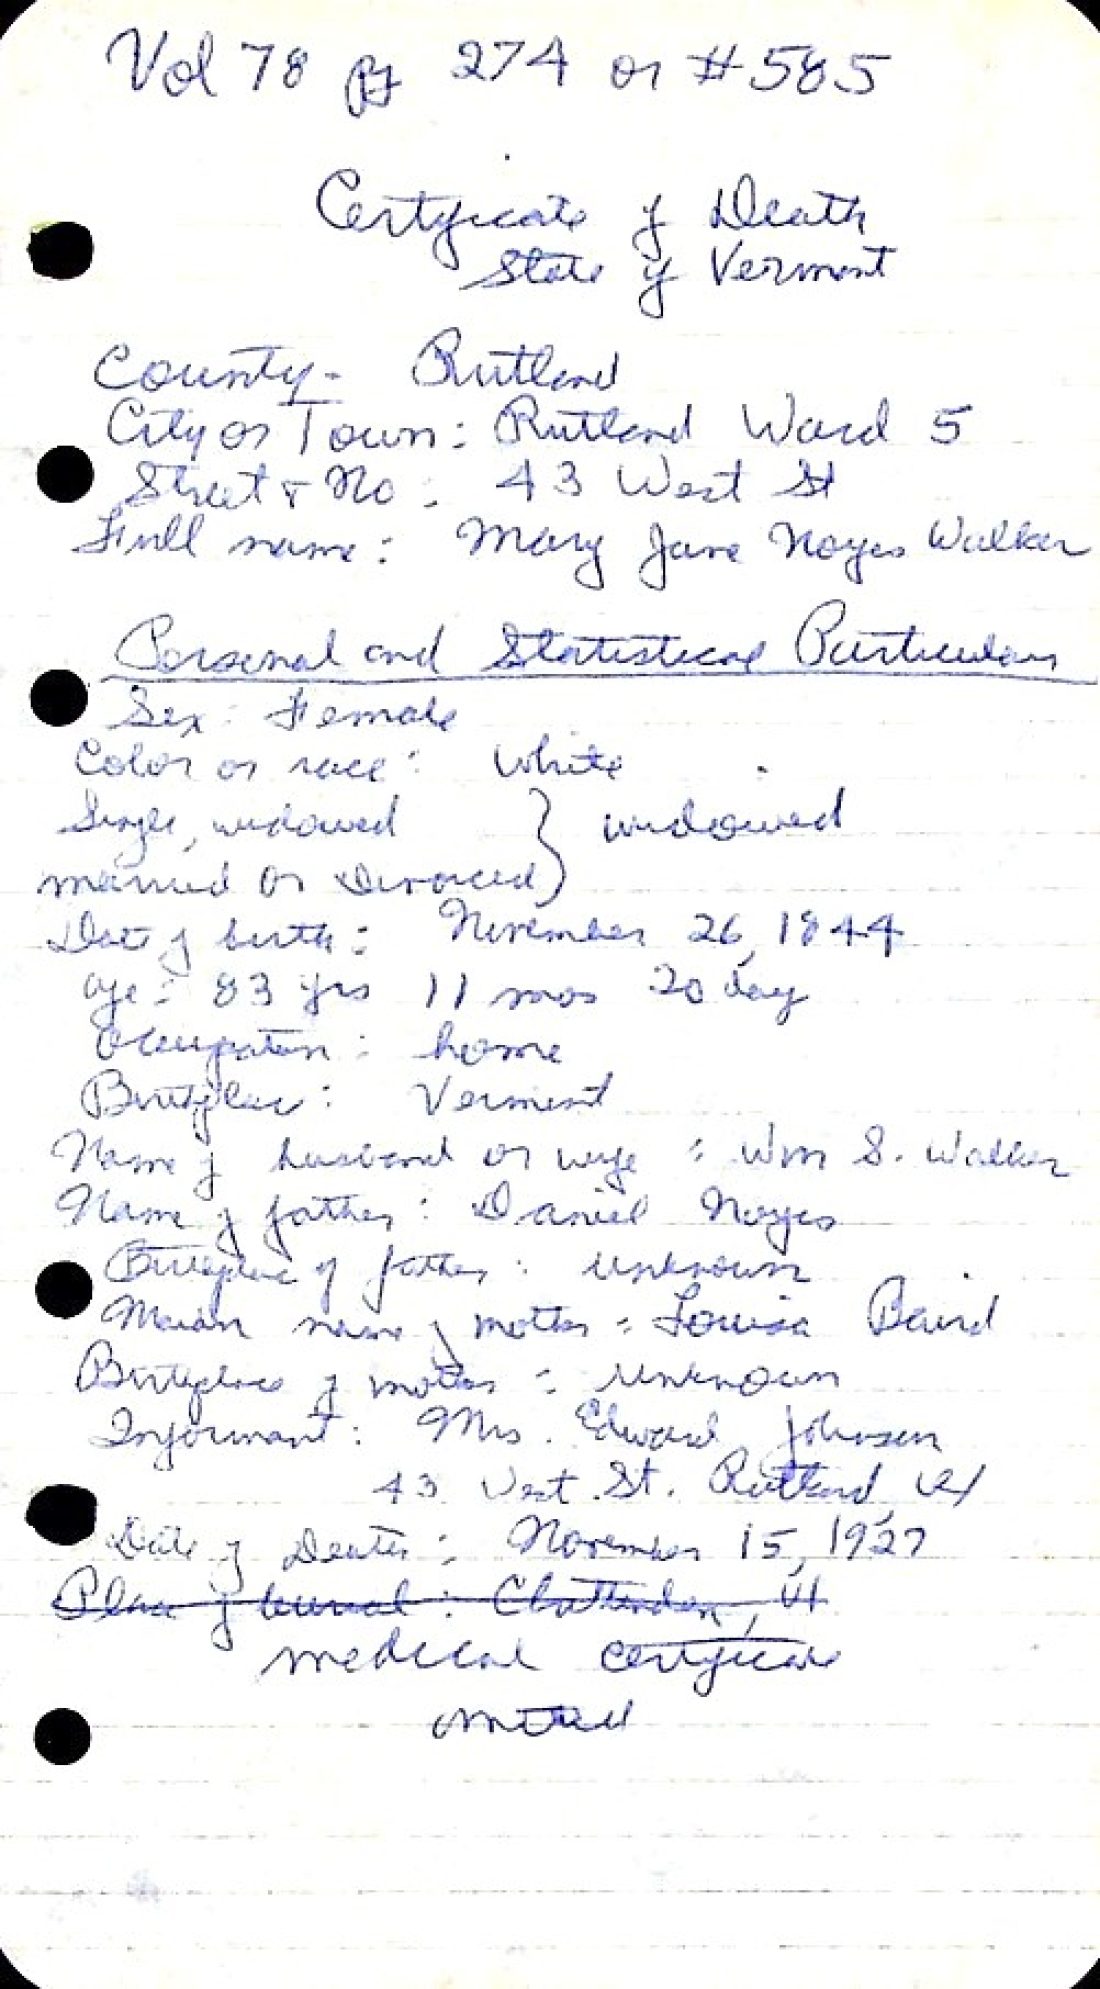 Vol 78 pg 274 or #585
Certificate of Death
State of Vermont
County - Rutland
City or Town: Rutland Ward 5
Street & No: 43 West St
Full name: Mary Jane Noyes Walker
Personal and Statistical Particulars
Sex: Female
Color or race: White
Single, widowed } widowed
married or Divorced }
Date of birth: November 26, 1844
age: 83 yrs 11 mos 20 day
Occupation: home
Birthplace: Vermont
Name of husband or wife: Wm S. Walker
Name of father: Daniel Noyes
Birthplace of father: unknown
Maiden name of mother: Louisa Baird
Birthplace of mother: unknown
Informant: Mrs. Edward Johnson
43 West St. Rutland, Vt
Date of Death: November 15, 1927
Place of burial: Chittenden, Vt
medical certificate
omitted